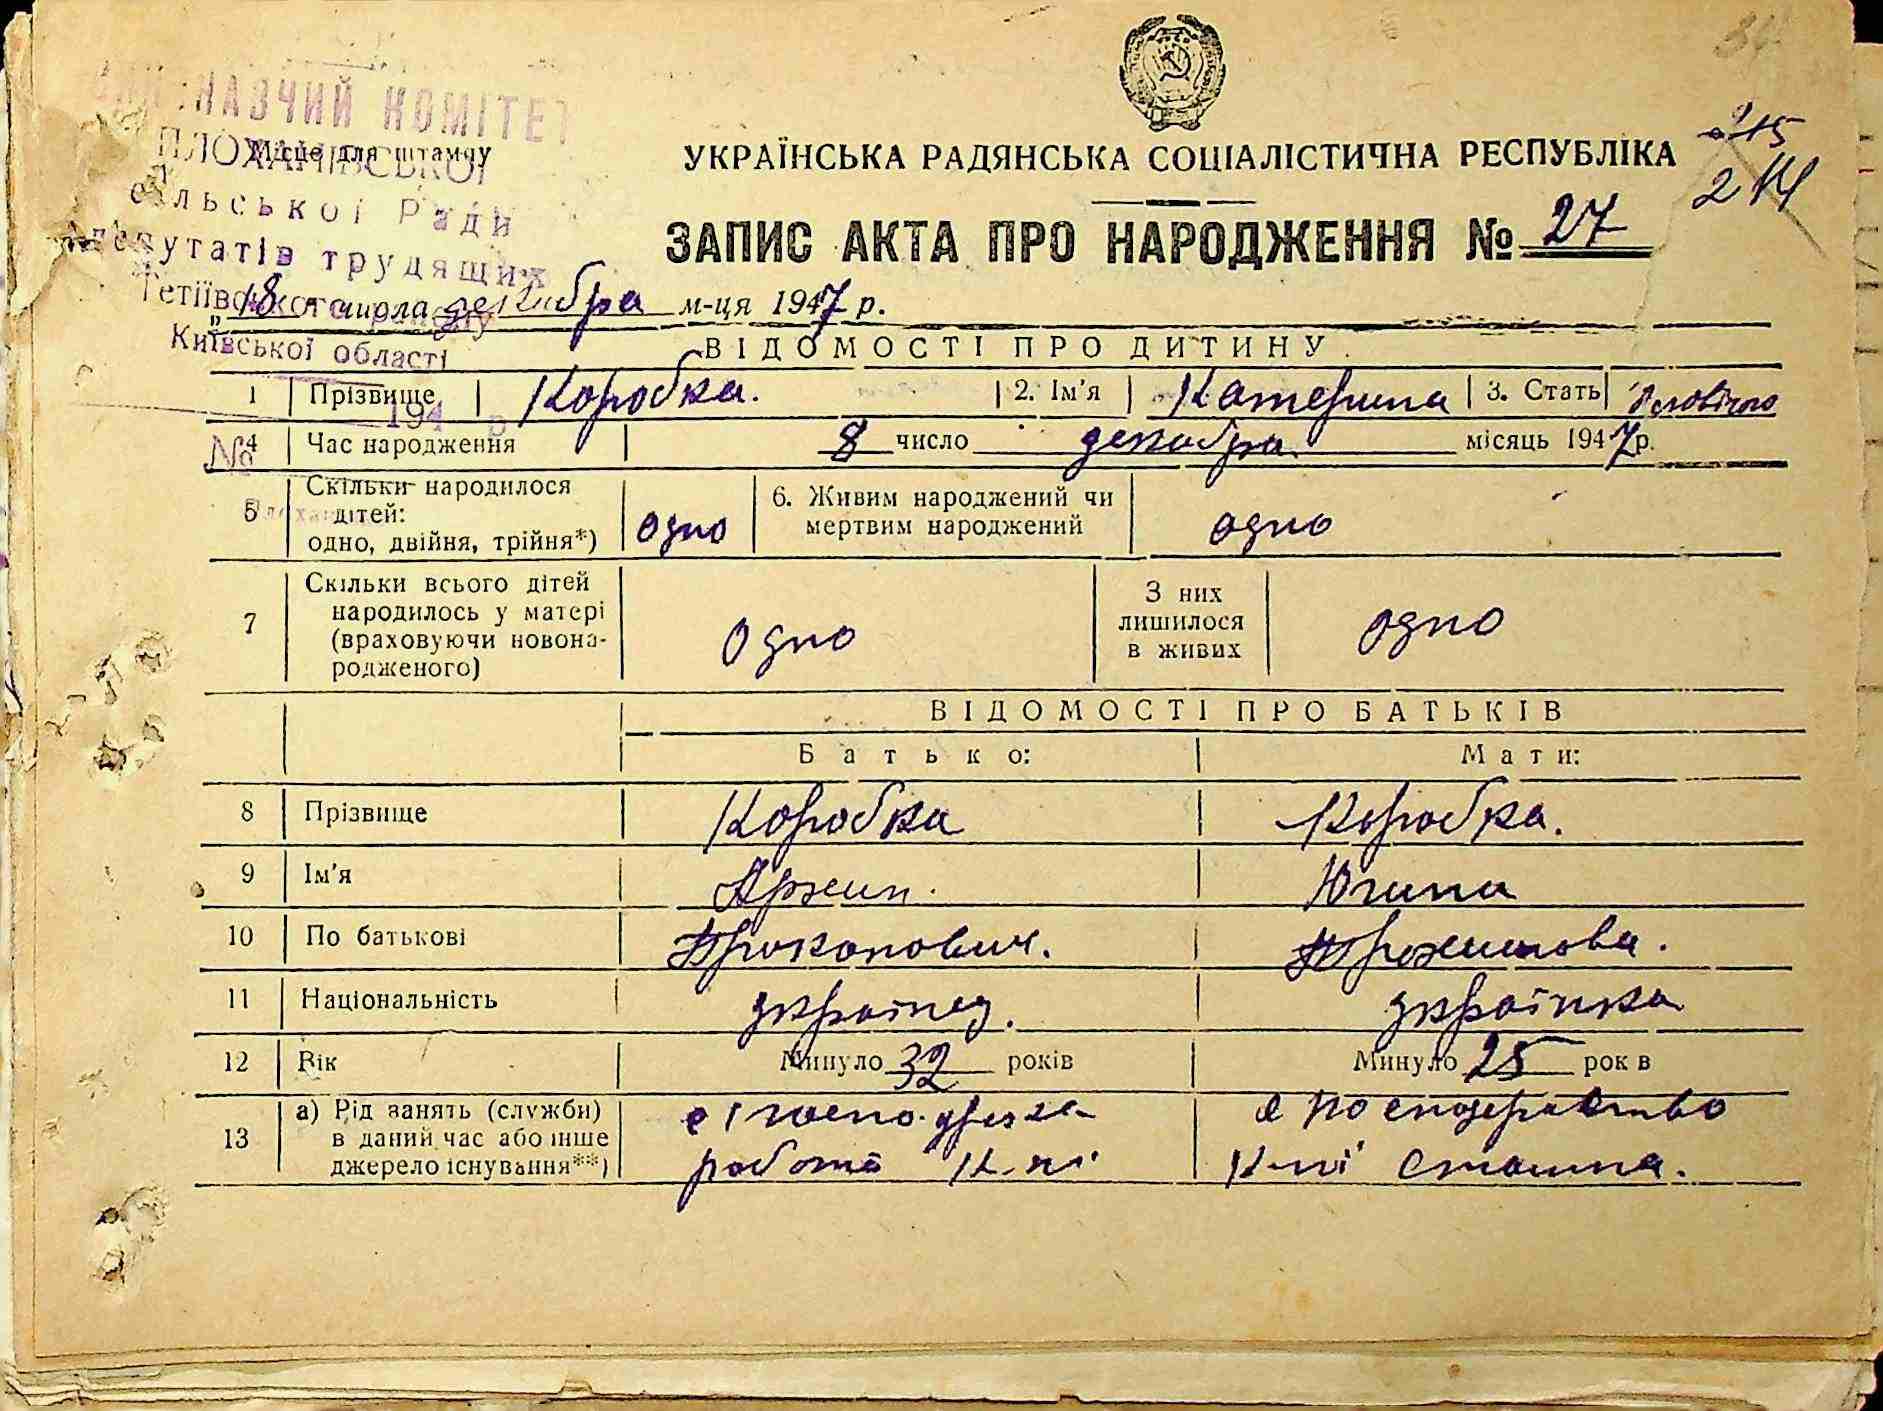 34
КОМІТЕТ
Місце для штампу
ПЛОХАНІВСЬКОЇ
сільської Ради
депутатів трудящих
Тетіївського району
Київської області
194 р
№
УКРАЇНСЬКА РАДЯНСЬКА СОЦІАЛІСТИЧНА РЕСПУБЛІКА
215
214
ЗАПИС АКТА ПРО НАРОДЖЕННЯ № 27
"18" числа декабра м-ця 1947 р.
ВІДОМОСТІ ПРО ДИТИНУ
1 Прізвище Коробка. 2. Ім'я Катерина 3. Стать
4 Час народження 8 число декабра. місяць 1947 р.
5 Скільки народилося дітей: одно, двійня, трійня*) одно 6. Живим народжений чи мертвим народжений одно
7 Скільки всього дітей народилось у матері (враховуючи новонародженого) одно З них лишилося в живих одно
ВІДОМОСТІ ПРО БАТЬКІВ
Батько: Мати:
8 Прізвище Коробка Коробка.
9 Ім'я Югина
10 По батькові Прокопович.
11 Національність українец. українка
12 Вік Минуло 32 років Минуло 25 років
13 а) Рід занять (служби) в даний час або інше джерело існування**)
робота